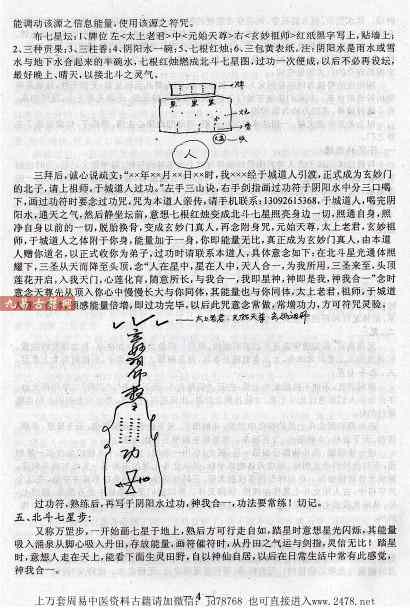 能调动该源之信息能量,使用该源之符咒。
布七星坛:1、牌位 左<太上老君>中<元始天尊>右<玄妙祖师>红纸黑字写上,贴墙上;
2、三种贡果;3、三柱香;4、阴阳水一碗;5、七根红烛;6、三包黄表纸,注:阴阳水是雨水或雪
水与地下水合起来的半碗水,七根红烛燃成北斗七星图,过功一次便成,以后不必再设坛,
最好晚上、晴天,以接北斗之灵气。
人
三拜后,诚心说疏文:“××年××月××日××时,我×××经于城道人引渡,正式成为玄妙门
的北子,请上祖师,于城道人过功。”左手三山诀,右手剑指画过功符于阴阳水中分三口喝
下,画过功符时要念过功咒,咒为本道人亲传;请手机联系:13092615368,于城道人,喝完阴
阳水,通天之气,然后静坐坛前,意想七根红烛变成北斗七星照亮身边一切,照通自身,照
净自身以前的一切,脱胎换骨,变成玄妙门真人,再念附身咒,元始天尊,太上老君,玄妙祖
师,于城道人之体附于你身,能量加于一身,你即能量无比,真正成为玄妙门真人,由本道
人赠你道名,以正式收你为弟子,过功时请联系本道人,具体意念如下:在北斗星光通体照
耀下,三圣从天而降至头顶,念“人在星中,星在人中,天人合一,为我所用,三圣来至,头顶
莲花开启,入我天门,心莲化育,随意所长,与我合一,我即是神,神即是我,神我合一”念时
意念天尊先从顶入你心中慢慢长大与你同体,其能量也与你同体,太上老君,祖师,于城道
感能量倍增,即过功完毕,以后此咒意念常做,常增功力,方可符咒灵验。
太上老君、元始天尊、玄妙祖师
玄妙祖师敕令
功
过功符,熟练后,再写于阴阳水过功,神我合一,功法要常练!切记。
五、北斗七星步:
又称万罡步,一开始画七星于地上,熟后方可行走自如,踏星时意想星光闪烁,其能量
吸入涌泉从脚心吸入丹田,存放能量,画符催符时,从丹田之气运与剑指,灵信无比!踏星
时,意想人走在天上,能看下面生灵田野,自以神仙自居,以后在日常生活中常有此感觉,
神我合一。
— 4 —
上万套周易中医资料古籍请加微信:3078768 也可直接进入www.2478.net
九易古籍网